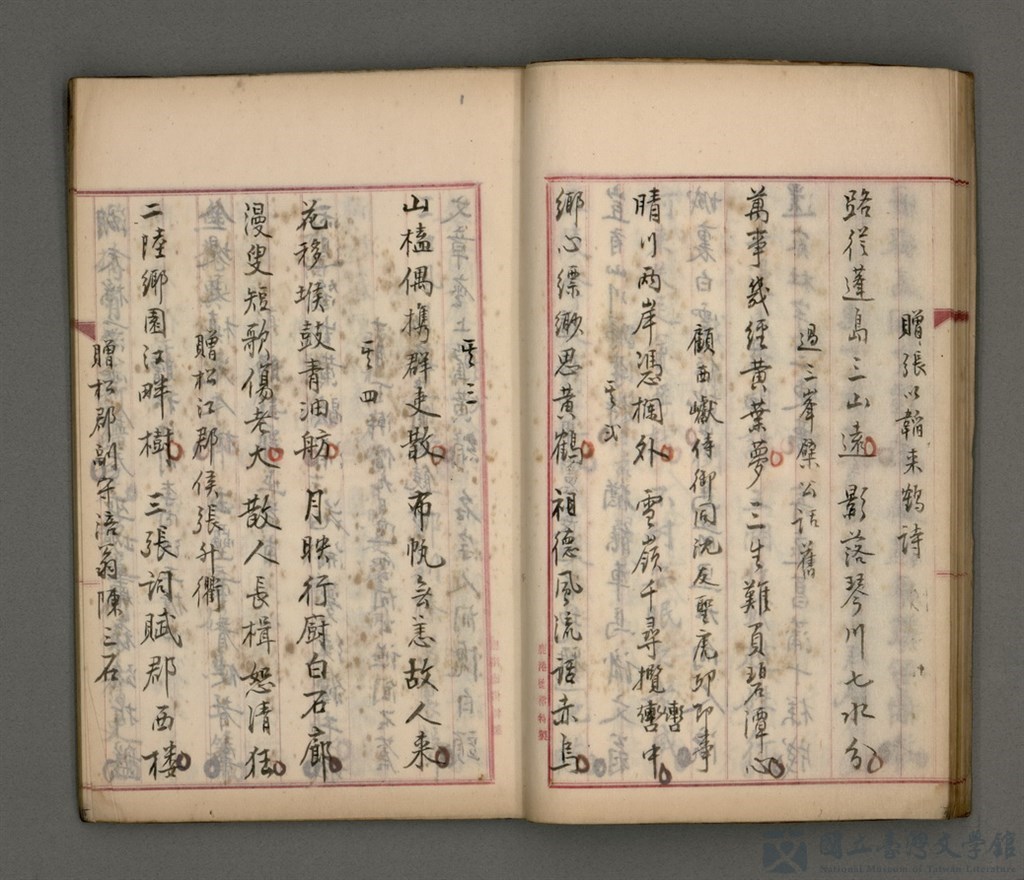 贈張以韜来鶴詩
路從蓬島三山遠 影落琴川七水分
過三峯檗公話舊
萬事幾經黄葉夢 三生難負碧潭心
顧西巘侍御同沈友聖虎邱即事
晴川两岸憑欄外 雪嶺千尋攬轡中
其二
鄉心縹緲思黄鶴 祖德風流話赤烏
其三
山榼偶携群吏散 布帆無恙故人来
其四
花移堠鼓青油舫 月映行廚白石廊
漫叟短歌傷老大 散人長楫恕清狂
贈松江郡侯張升衢
二陸鄉園江畔樹 三張詞賦郡西楼
贈松郡副守涪翁陳三石
國立臺灣文學館
National Museum of Taiwan Literature